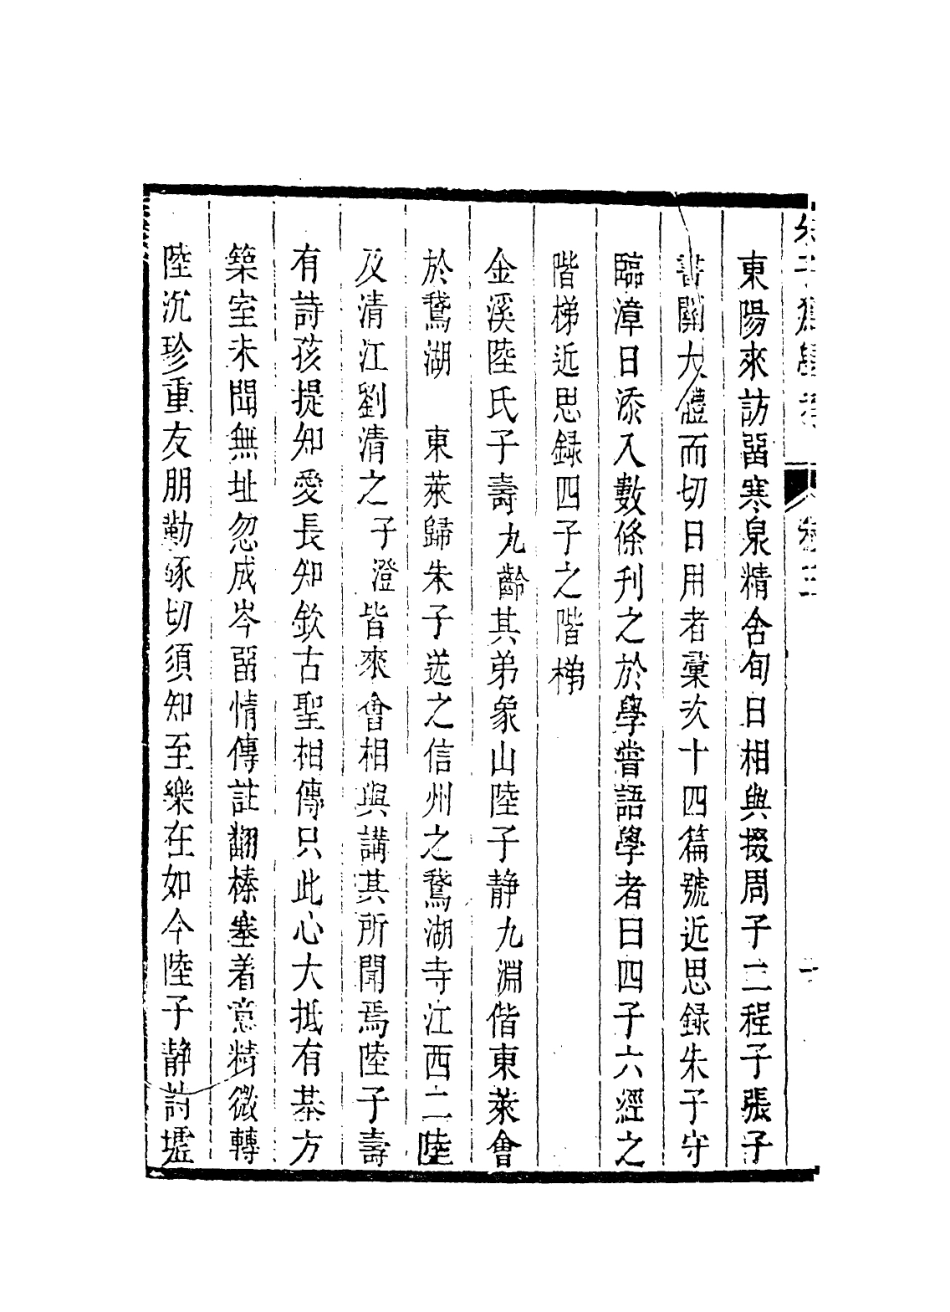 朱子為學考 卷三
東陽來訪留寒泉精舍旬日相與掇周子二程子張子
書關大體而切日用者彙次十四篇號近思録朱子守
臨漳日添入數條刋之於學嘗語學者曰四子六經之
階梯近思録四子之階梯
金溪陸氏子壽九齡其弟象山陸子静九淵偕東萊會
於鵞湖　東萊歸朱子送之信州之鵞湖寺江西二陸
及清江劉清之子澄皆來會相與講其所聞焉陸子壽
有詩孩提知愛長知欽古聖相傳只此心大抵有基方
築室未聞無址忽成岑留情傳註翻榛塞着意精微轉
陸沉珍重友朋勤琢切須知至樂在如今陸子静詩墟